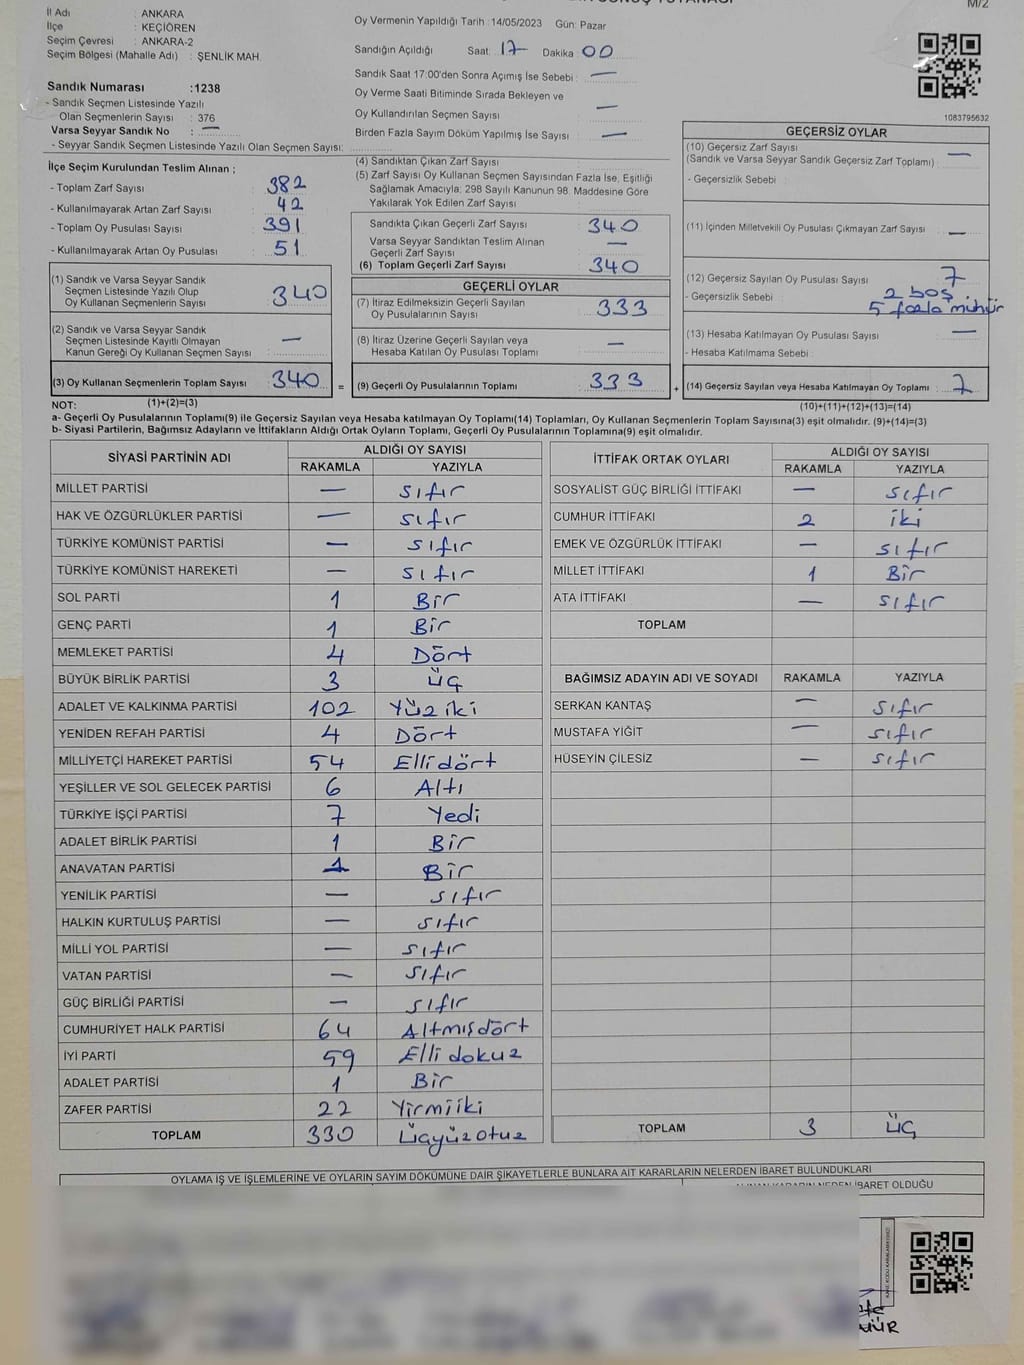 İl Adı : ANKARA
İlçe : KEÇİÖREN
Seçim Çevresi : ANKARA-2
Seçim Bölgesi (Mahalle Adı) : ŞENLİK MAH.
Sandık Numarası :1238
- Sandık Seçmen Listesinde Yazılı
Olan Seçmenlerin Sayısı : 376
Varsa Seyyar Sandık No : —
- Seyyar Sandık Seçmen Listesinde Yazılı Olan Seçmen Sayısı:
Oy Vermenin Yapıldığı Tarih :14/05/2023 Gün: Pazar
Sandığın Açıldığı Saat: 17 Dakika 00
Sandık Saat 17:00'den Sonra Açımış İse Sebebi : —
Oy Verme Saati Bitiminde Sırada Bekleyen ve
Oy Kullandırılan Seçmen Sayısı —
Birden Fazla Sayım Döküm Yapılmış İse Sayısı : —
M/2
1083795632
İlçe Seçim Kurulundan Teslim Alınan ;
- Toplam Zarf Sayısı : 382
- Kullanılmayarak Artan Zarf Sayısı : 42
- Toplam Oy Pusulası Sayısı : 391
- Kullanılmayarak Artan Oy Pusulası : 51
(1) Sandık ve Varsa Seyyar Sandık
Seçmen Listesinde Yazılı Olup
Oy Kullanan Seçmenlerin Sayısı : 340
(2) Sandık ve Varsa Seyyar Sandık
Seçmen Listesinde Kayıtlı Olmayan
Kanun Gereği Oy Kullanan Seçmen Sayısı : —
(3) Oy Kullanan Seçmenlerin Toplam Sayısı : 340
(1)+(2)=(3)
(4) Sandıktan Çıkan Zarf Sayısı :
(5) Zarf Sayısı Oy Kullanan Seçmen Sayısından Fazla İse, Eşitliği
Sağlamak Amacıyla, 298 Sayılı Kanunun 98. Maddesine Göre
Yakılarak Yok Edilen Zarf Sayısı :
Sandıkta Çıkan Geçerli Zarf Sayısı : 340
Varsa Seyyar Sandıktan Teslim Alınan
Geçerli Zarf Sayısı : —
(6) Toplam Geçerli Zarf Sayısı : 340
GEÇERLİ OYLAR
(7) İtiraz Edilmeksizin Geçerli Sayılan
Oy Pusulalarının Sayısı : 333
(8) İtiraz Üzerine Geçerli Sayılan veya
Hesaba Katılan Oy Pusulası Toplamı : —
= (9) Geçerli Oy Pusulalarının Toplamı : 333 +
GEÇERSİZ OYLAR
(10) Geçersiz Zarf Sayısı
(Sandık ve Varsa Seyyar Sandık Geçersiz Zarf Toplamı) : —
- Geçersizlik Sebebi :
(11) İçinden Milletvekili Oy Pusulası Çıkmayan Zarf Sayısı : —
(12) Geçersiz Sayılan Oy Pusulası Sayısı : 7
- Geçersizlik Sebebi : 2 boş
5 fazla mühür
(13) Hesaba Katılmayan Oy Pusulası Sayısı : —
- Hesaba Katılmama Sebebi :
(14) Geçersiz Sayılan veya Hesaba Katılmayan Oy Toplamı : 7
(10)+(11)+(12)+(13)=(14)
NOT:
a- Geçerli Oy Pusulalarının Toplamı(9) ile Geçersiz Sayılan veya Hesaba katılmayan Oy Toplamı(14) Toplamları, Oy Kullanan Seçmenlerin Toplam Sayısına(3) eşit olmalıdır. (9)+(14)=(3)
b- Siyasi Partilerin, Bağımsız Adayların ve İttifakların Aldığı Ortak Oyların Toplamı, Geçerli Oy Pusulalarının Toplamına(9) eşit olmalıdır.
SİYASİ PARTİNİN ADI ALDIĞI OY SAYISI
RAKAMLA YAZIYLA
MİLLET PARTİSİ — sıfır
HAK VE ÖZGÜRLÜKLER PARTİSİ — sıfır
TÜRKİYE KOMÜNİST PARTİSİ — sıfır
TÜRKİYE KOMÜNİST HAREKETİ — sıfır
SOL PARTİ 1 Bir
GENÇ PARTİ 1 Bir
MEMLEKET PARTİSİ 4 Dört
BÜYÜK BİRLİK PARTİSİ 3 üç
ADALET VE KALKINMA PARTİSİ 102 Yüz iki
YENİDEN REFAH PARTİSİ 4 Dört
MİLLİYETÇİ HAREKET PARTİSİ 54 Elli dört
YEŞİLLER VE SOL GELECEK PARTİSİ 6 Altı
TÜRKİYE İŞÇİ PARTİSİ 7 Yedi
ADALET BİRLİK PARTİSİ 1 Bir
ANAVATAN PARTİSİ 1 Bir
YENİLİK PARTİSİ — sıfır
HALKIN KURTULUŞ PARTİSİ — sıfır
MİLLİ YOL PARTİSİ — sıfır
VATAN PARTİSİ — sıfır
GÜÇ BİRLİĞİ PARTİSİ — sıfır
CUMHURİYET HALK PARTİSİ 64 Altmışdört
İYİ PARTİ 59 Elli dokuz
ADALET PARTİSİ 1 Bir
ZAFER PARTİSİ 22 Yirmiiki
TOPLAM 330 üçyüzotuz
İTTİFAK ORTAK OYLARI ALDIĞI OY SAYISI
RAKAMLA YAZIYLA
SOSYALİST GÜÇ BİRLİĞİ İTTİFAKI — sıfır
CUMHUR İTTİFAKI 2 iki
EMEK VE ÖZGÜRLÜK İTTİFAKI — sıfır
MİLLET İTTİFAKI 1 Bir
ATA İTTİFAKI — sıfır
TOPLAM
BAĞIMSIZ ADAYIN ADI VE SOYADI RAKAMLA YAZIYLA
SERKAN KANTAŞ — sıfır
MUSTAFA YİĞİT — sıfır
HÜSEYİN ÇİLESİZ — sıfır
TOPLAM 3 üç
OYLAMA İŞ VE İŞLEMLERİNE VE OYLARIN SAYIM DÖKÜMÜNE DAİR ŞİKAYETLERLE BUNLARA AİT KARARLARIN NELERDEN İBARET BULUNDUKLARI
İBARET OLDUĞU